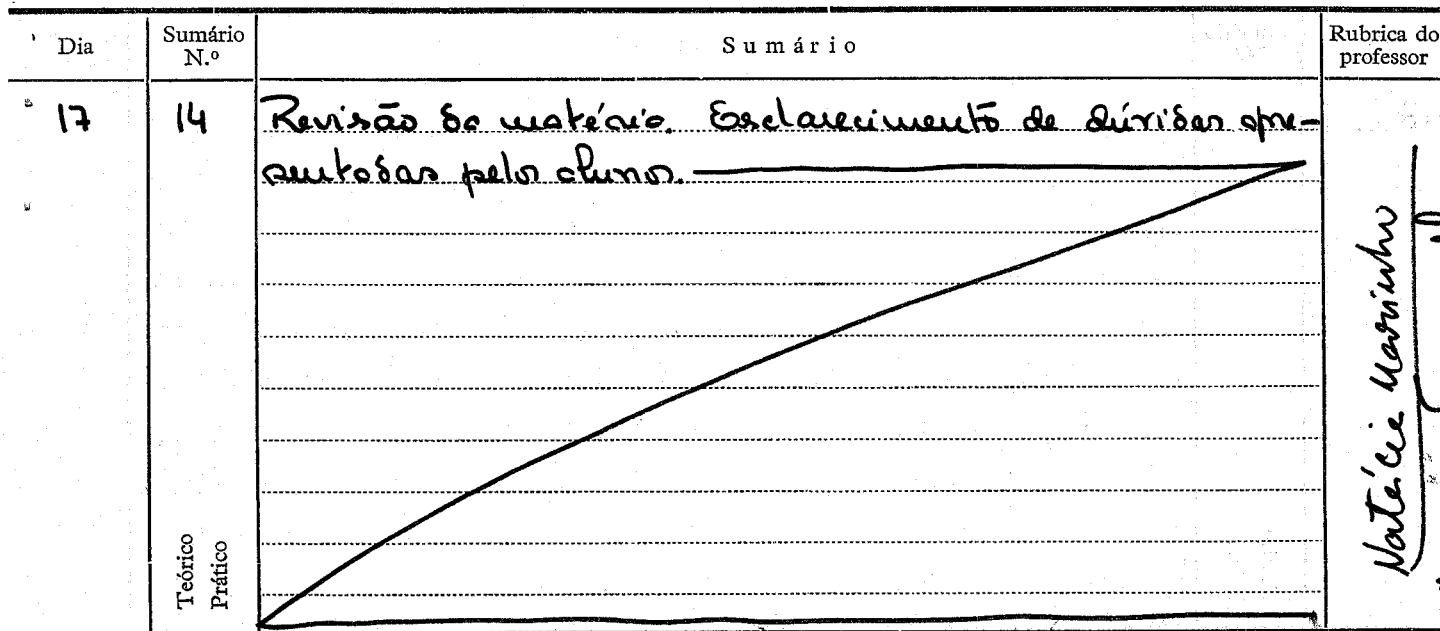 Dia
Sumário
N.º
Sumário
Rubrica do
professor
17
14
Revisão da matéria. Esclarecimento de dúvidas apre-
sentadas pelos alunos.
Teórico
Prático
Natércia Marinho